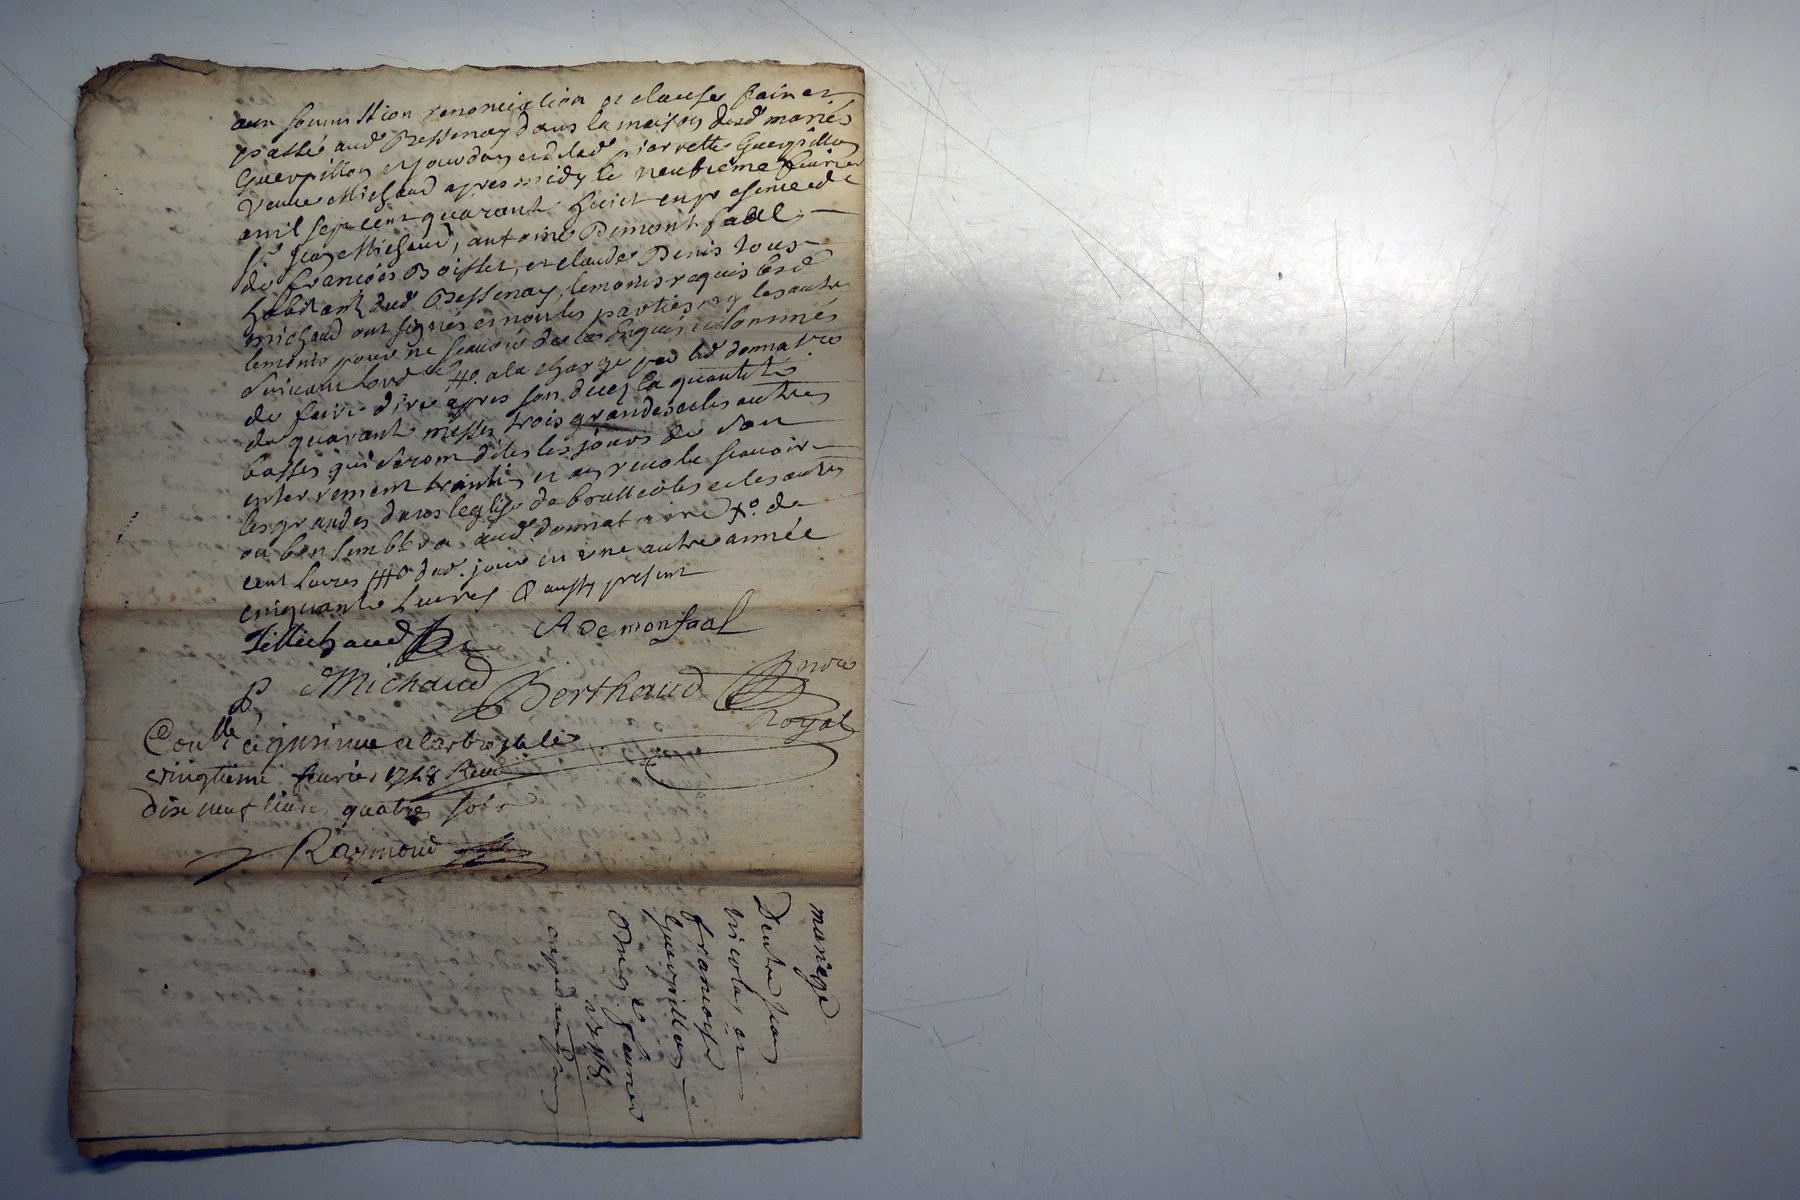 avec soumission renonciation et clauses fait et
passé aud. Bessenay dans la maison desd. mariés
Guerpillon et Jourdan et de lad. pierrette Guerpillon
veuve Michaud apres midy le neufvieme fevrier
mil sept cent quarante huict en presence de
Sr Jean Michaud, antoine Demontfaal
de francois Boisset, et claude Denis tous
habitants dud. Bessenay, temoins requis lesd.
michaud ont signés et non les parties ny les autres
temoins pour ne scavoir de ce Enquis et sommés
suivant lord. à la charge par led. donnataire
de faire dire apres son decez la quantité
de quarante messes trois grandes et les autres
basses qui seront dites les jours de son
enterrement et scavoir
les grandes dans leglise de brullioles et les autres
ou bon semblera aud. donnataire de
cent Livres jour en une autre année
cinquante Livres aussy present
Michaud A Demonfaal
P Michaud Berthaud nore
Royal
Con.lle et insinué a larbresle le
vingtieme fevrier 1748 Receu
dix neuf livres quatre sols
Raymond
mariage
Dentre jean
nicolas et
francoise
Guerpillon
Du 9e fevrier
1748.